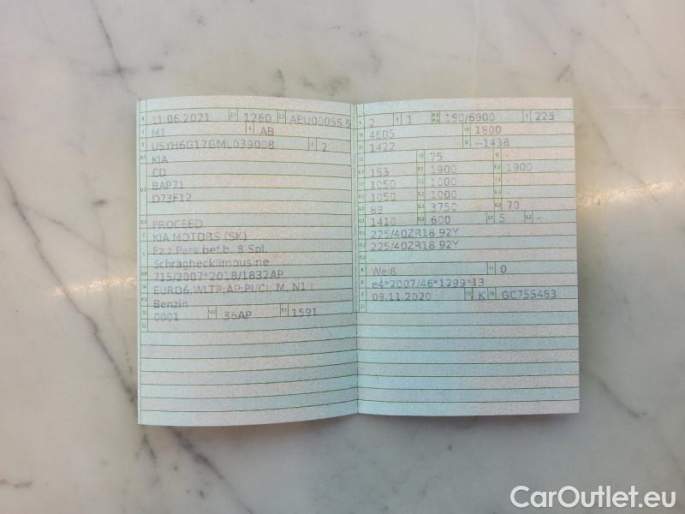 11.06.2021 1260 AEU00055
M1 AB
U5YH6G17GML039008 2
KIA
CD
BAP71
D73F12
PROCEED
KIA MOTORS (SK)
Fz.z.Pers.bef.b. 8 Spl.
Schräghecklimousine
715/2007*2018/1832AP
EURO6,WLTP;AP;PI/CI; M, N1 I
Benzin
0001 36AP 1591
2 1 150/6000 225
4605 1800
1422 -1438
75
153 1900 1900
1050 1000
1050 1000
69 3755 70
1410 600 5 -
225/40ZR18 92Y
225/40ZR18 92Y
Weiß 0
e4*2007/46*1299*13
09.11.2020 K GC755453
CarOutlet.eu